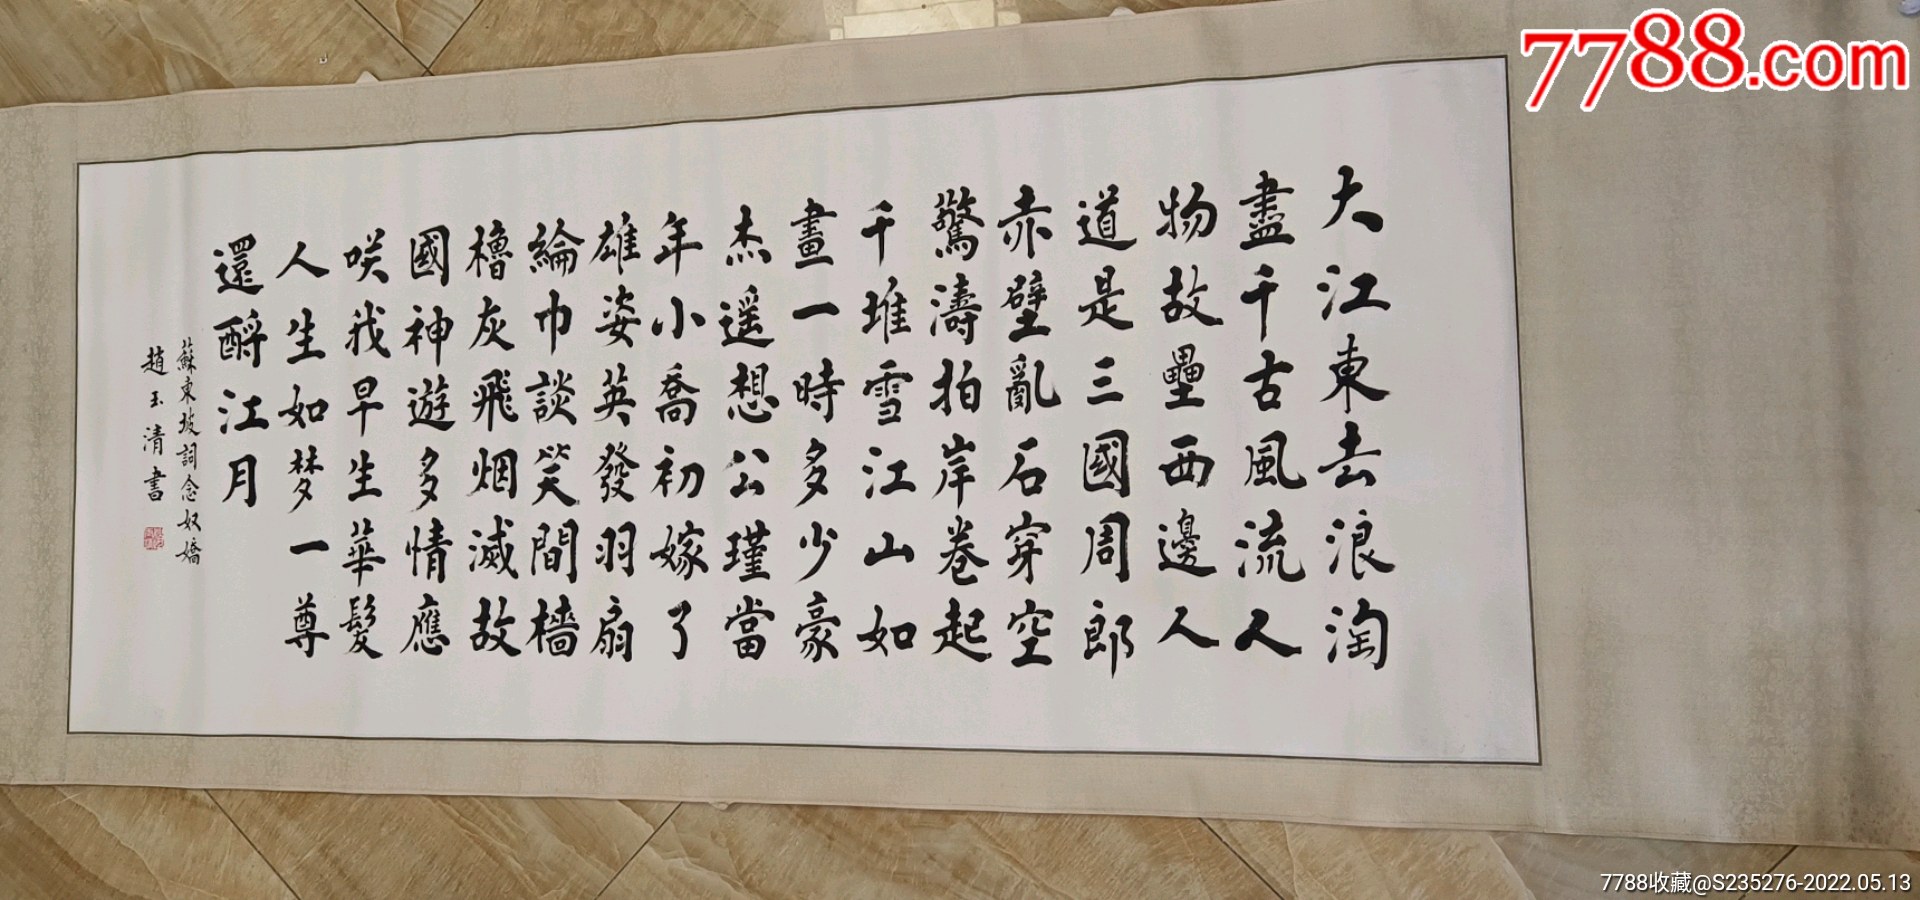 大江東去浪淘
盡千古風流人
物故壘西邊人
道是三國周郎
赤壁亂石穿空
驚濤拍岸卷起
千堆雪江山如
畫一時多少豪
杰遥想公瑾當
年小喬初嫁了
雄姿英發羽扇
綸巾談笑間檣
櫓灰飛烟滅故
國神遊多情應
咲我早生華髮
人生如梦一尊
還酹江月
蘇東坡詞念奴嬌
趙玉清書
7788.com
7788收藏@S235276-2022.05.13